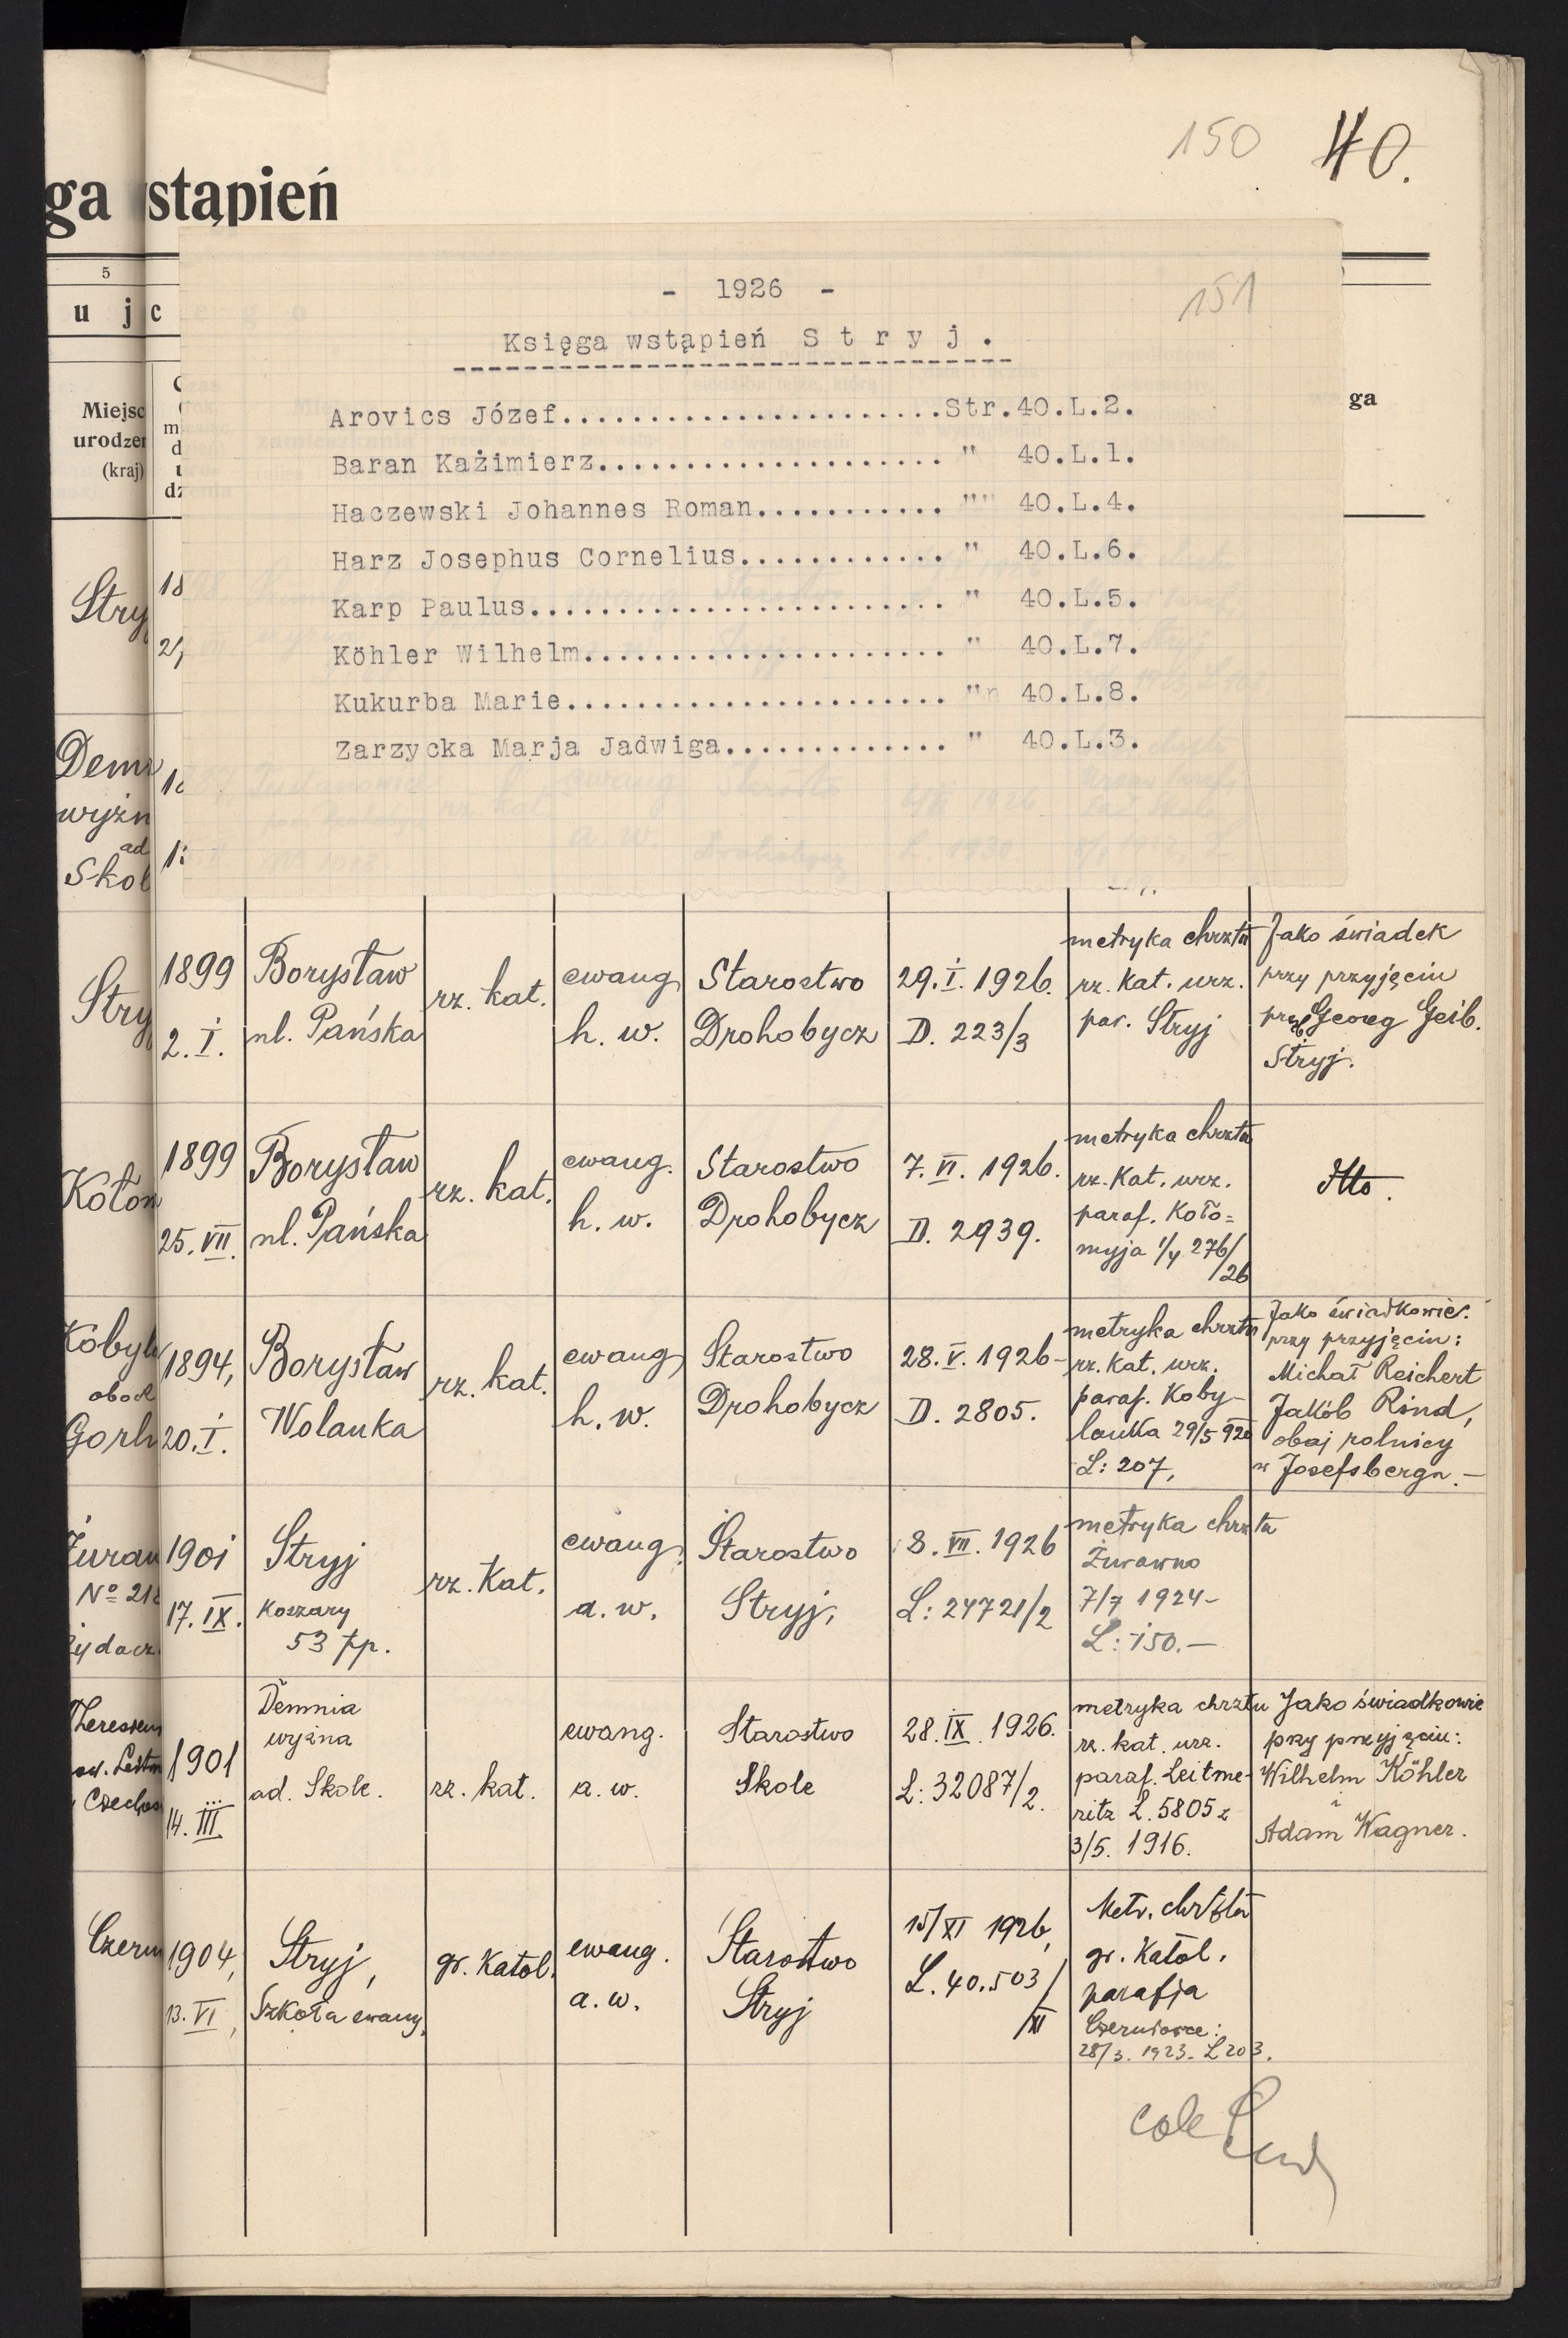 150 40.
ga stąpień
5
u j c
Miejsc
urodzen
(kraj)
ga
- 1926 -
151
Księga wstąpień S t r y j .
Arovics Józef.......................Str.40.L.2.
Baran Każimierz..................... " 40.L.1.
Haczewski Johannes Roman............ "" 40.L.4.
Harz Josephus Cornelius............. " 40.L.6.
Karp Paulus......................... " 40.L.5.
Köhler Wilhelm...................... " 40.L.7.
Kukurba Marie....................... "n 40.L.8.
Zarzycka Marja Jadwiga.............. " 40.L.3.
Stry
18
21,
Demn
wyżn
ad
Skol
Stry
1899
2. I.
Borysław
ul. Pańska
rz. kat.
ewang
h. w.
Starostwo
Drohobycz
29. I. 1926.
D. 223/3
metryka chrztu
rz. kat. urz.
par. Stryj
Jako świadek
przy przyjęciu
Georg Geib.
Stryj.
Kołom
1899
25. VII.
Borysław
ul. Pańska
rz. kat.
ewang.
h. w.
Starostwo
Drohobycz
7. VI. 1926.
D. 2939.
metryka chrztu
rz. Kat. urz.
paraf. Koło=
myja 1/4 276/
/26
Itto.
Kobyl
obok
Gorli
1894,
20. I.
Borysław
Wolanka
rz. kat.
ewang
h. w.
Starostwo
Drohobycz
28. V. 1926-
D. 2805.
metryka chrztu
rz. Kat. urz.
paraf. Koby-
lanka 29/5 926
L: 207,
Jako świadkowie
przy przyjęciu:
Michał Reichert
Jakób Rind,
obaj rolnicy
w Josefsbergu.-
Żuraw
Nº 218
Żydacz
1901
17. IX.
Stryj
Koszary
53 pp.
rz. Kat.
ewang.
a. w.
Starostwo
Stryj,
8. VII. 1926
L: 24721/2
metryka chrztu
Żurawno
7/7 1924-
L: 150.-
Theresien
Czechos
1901
14. III.
Demnia
wyżna
ad. Skole.
rz. kat.
ewang.
a. w.
Starostwo
Skole
28. IX. 1926.
L: 32087/2.
metryka chrztu
rz. kat. urz.
paraf. Leitme-
ritz L. 5805 z
3/5. 1916.
Jako świadkowie
przy przyjęciu:
Wilhelm Köhler
i
Adam Wagner.
Czern
1904,
13. VI,
Stryj,
Szkoła ewang.
gr. Katol.
ewang.
a. w.
Starostwo
Stryj
15/XI 1926,
L. 40.503/
/XI
Metr. chrztu
gr. Katol.
parafja
Czerniowce:
28/3. 1923. L 203.